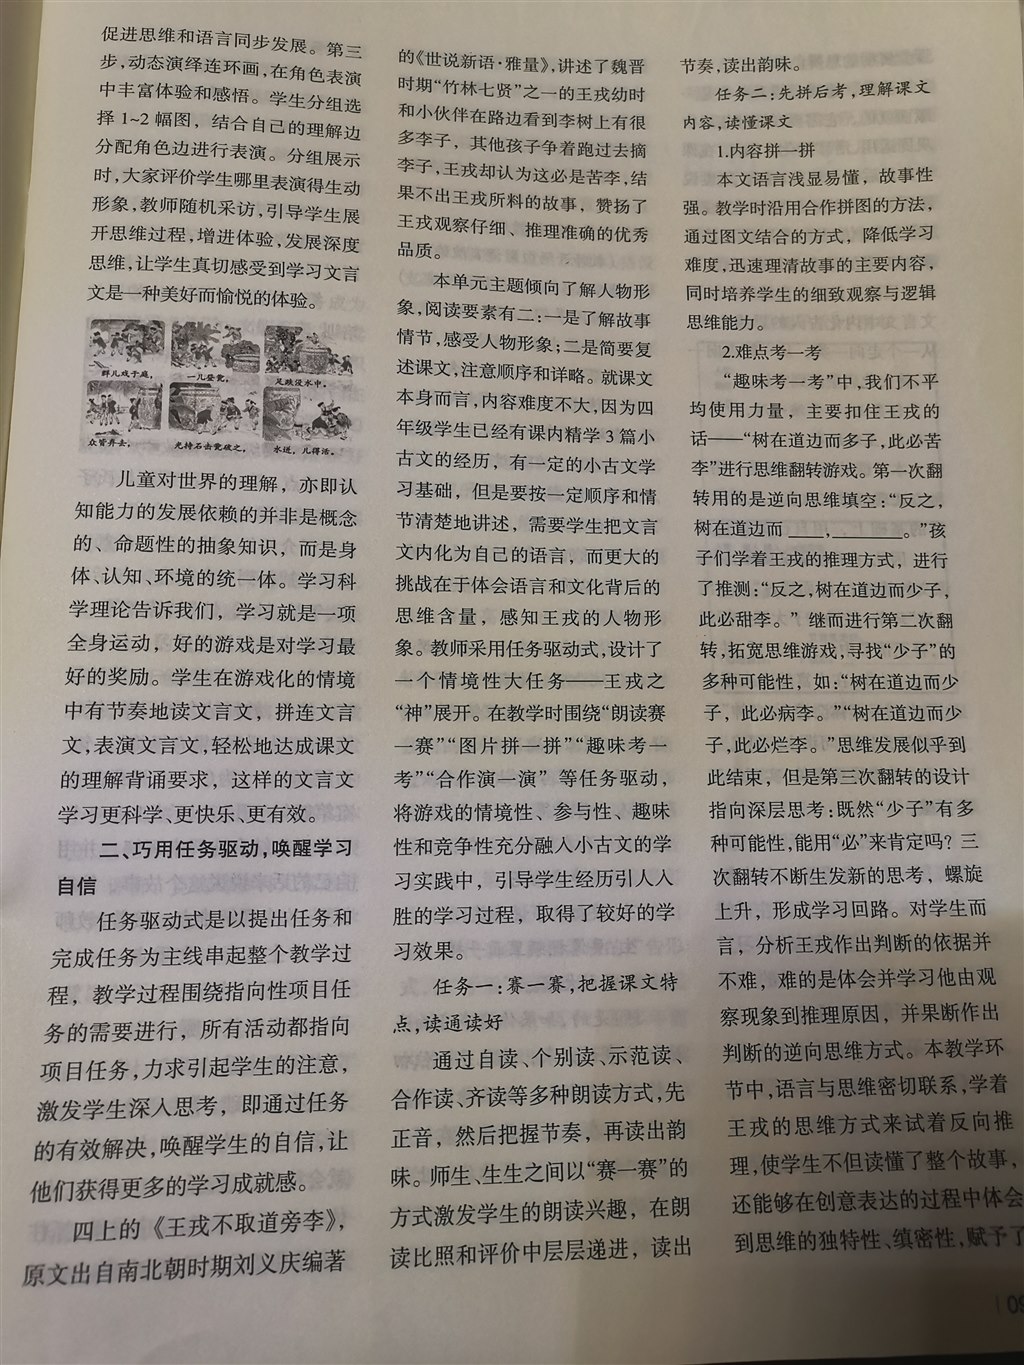 促进思维和语言同步发展。第三
步,动态演绎连环画,在角色表演
中丰富体验和感悟。学生分组选
择1~2幅图，结合自己的理解边
分配角色边进行表演。分组展示
时,大家评价学生哪里表演得生动
形象,教师随机采访,引导学生展
开思维过程,增进体验,发展深度
思维,让学生真切感受到学习文言
文是一种美好而愉悦的体验。
群儿戏于庭,
一儿登瓮,
足跌没水中。
众皆弃去,
光持石击瓮破之,
水迸,儿得活。
儿童对世界的理解，亦即认
知能力的发展依赖的并非是概念
的、命题性的抽象知识，而是身
体、认知、环境的统一体。学习科
学理论告诉我们，学习就是一项
全身运动，好的游戏是对学习最
好的奖励。学生在游戏化的情境
中有节奏地读文言文，拼连文言
文,表演文言文,轻松地达成课文
的理解背诵要求，这样的文言文
学习更科学、更快乐、更有效。
二、巧用任务驱动,唤醒学习
自信
任务驱动式是以提出任务和
完成任务为主线串起整个教学过
程，教学过程围绕指向性项目任
务的需要进行，所有活动都指向
项目任务,力求引起学生的注意,
激发学生深入思考，即通过任务
的有效解决,唤醒学生的自信,让
他们获得更多的学习成就感。
四上的《王戎不取道旁李》,
原文出自南北朝时期刘义庆编著
的《世说新语·雅量》,讲述了魏晋
时期“竹林七贤”之一的王戎幼时
和小伙伴在路边看到李树上有很
多李子，其他孩子争着跑过去摘
李子,王戎却认为这必是苦李,结
果不出王戎所料的故事，赞扬了
王戎观察仔细、推理准确的优秀
品质。
本单元主题倾向了解人物形
象,阅读要素有二:一是了解故事
情节,感受人物形象;二是简要复
述课文,注意顺序和详略。就课文
本身而言,内容难度不大,因为四
年级学生已经有课内精学3篇小
古文的经历，有一定的小古文学
习基础，但是要按一定顺序和情
节清楚地讲述，需要学生把文言
文内化为自己的语言，而更大的
挑战在于体会语言和文化背后的
思维含量，感知王戎的人物形
象。教师采用任务驱动式,设计了
一个情境性大任务——王戎之
“神”展开。在教学时围绕“朗读赛
一赛”“图片拼一拼”“趣味考一
考”“合作演一演”等任务驱动，
将游戏的情境性、参与性、趣味
性和竞争性充分融入小古文的学
习实践中，引导学生经历引人入
胜的学习过程，取得了较好的学
习效果。
任务一:赛一赛,把握课文特
点,读通读好
通过自读、个别读、示范读、
合作读、齐读等多种朗读方式,先
正音，然后把握节奏，再读出韵
味。师生、生生之间以“赛一赛”的
方式激发学生的朗读兴趣，在朗
读比照和评价中层层递进，读出
节奏,读出韵味。
任务二:先拼后考,理解课文
内容,读懂课文
1.内容拼一拼
本文语言浅显易懂，故事性
强。教学时沿用合作拼图的方法,
通过图文结合的方式，降低学习
难度,迅速理清故事的主要内容,
同时培养学生的细致观察与逻辑
思维能力。
2.难点考一考
“趣味考一考”中,我们不平
均使用力量，主要扣住王戎的
话——“树在道边而多子,此必苦
李”进行思维翻转游戏。第一次翻
转用的是逆向思维填空:“反之,
树在道边而____,________。”孩
子们学着王戎的推理方式，进行
了推测:“反之,树在道边而少子,
此必甜李。”继而进行第二次翻
转,拓宽思维游戏,寻找“少子”的
多种可能性，如:“树在道边而少
子，此必病李。”“树在道边而少
子,此必烂李。”思维发展似乎到
此结束，但是第三次翻转的设计
指向深层思考:既然“少子”有多
种可能性,能用“必”来肯定吗？三
次翻转不断生发新的思考，螺旋
上升，形成学习回路。对学生而
言，分析王戎作出判断的依据并
不难，难的是体会并学习他由观
察现象到推理原因，并果断作出
判断的逆向思维方式。本教学环
节中,语言与思维密切联系,学着
王戎的思维方式来试着反向推
理,使学生不但读懂了整个故事,
还能够在创意表达的过程中体会
到思维的独特性、缜密性,赋予了